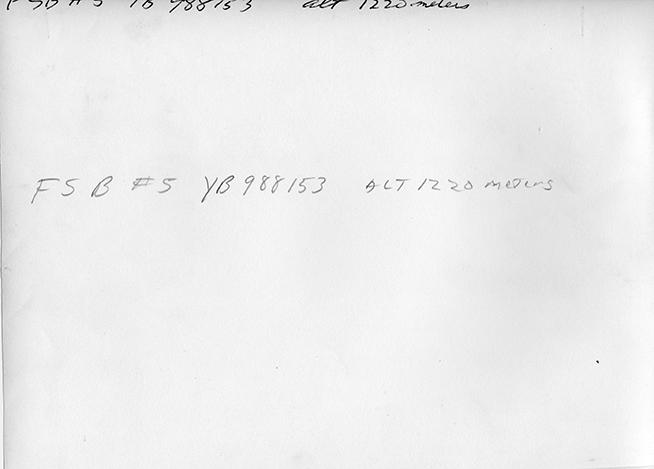 FSB #5 YB 988153 alt 1220 meters
FSB #5 YB988153 ALT 1220 meters